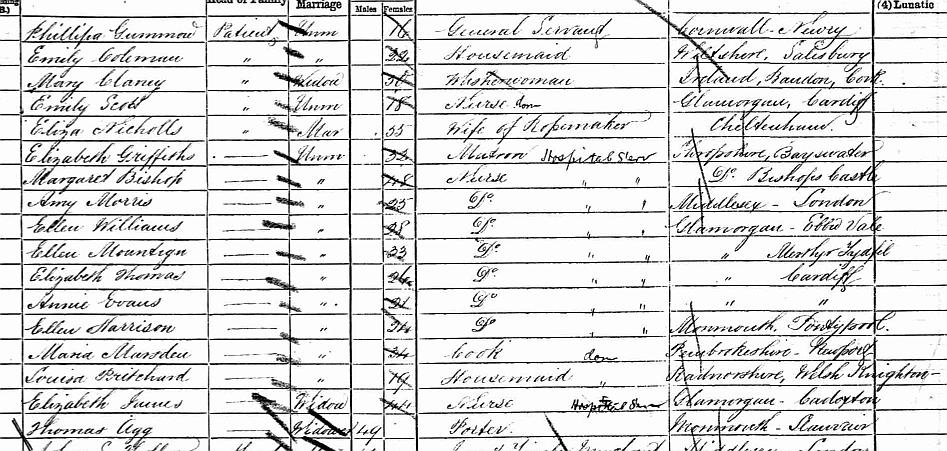 Head of Family Marriage Males Females (4) Lunatic
Phillipa Gummow Patient Unm 16 General Servant Cornwall - Newry
Emily Coleman " " 22 Housemaid Wiltshire, Salisbury
Mary Claney " Widow 38 Washerwoman Ireland, Bandon, Cork
Emily Scott " Unm 18 Nurse dom Glamorgan, Cardiff
Eliza Nicholls " Mar 35 Wife of Ropemaker Cheltenham
Elizabeth Griffiths Unm 32 Matron Hospital Serv Shropshire, Bayswater
Margaret Bishop " 48 Nurse " " Do Bishops Castle
Amy Morris " 25 Do " " Middlesex - London
Ellen Williams " 28 Do " " Glamorgan - Ebbw Vale
Ellen Mountign " 33 Do " " " Merthyr Tydfil
Elizabeth Thomas " 26 Do " " " Cardiff
Annie Evans " 21 Do " " " "
Ellen Harrison " 34 Do " " Monmouth, Pontypool
Maria Marsden " 34 Cook dom Pembrokeshire - Newport
Louisa Pritchard " 19 Housemaid " Radnorshire, Welsh Knighton
Elizabeth James Widow 44 Nurse Hospital Serv Glamorgan -
Thomas Agg Widower 49 Porter Monmouth -